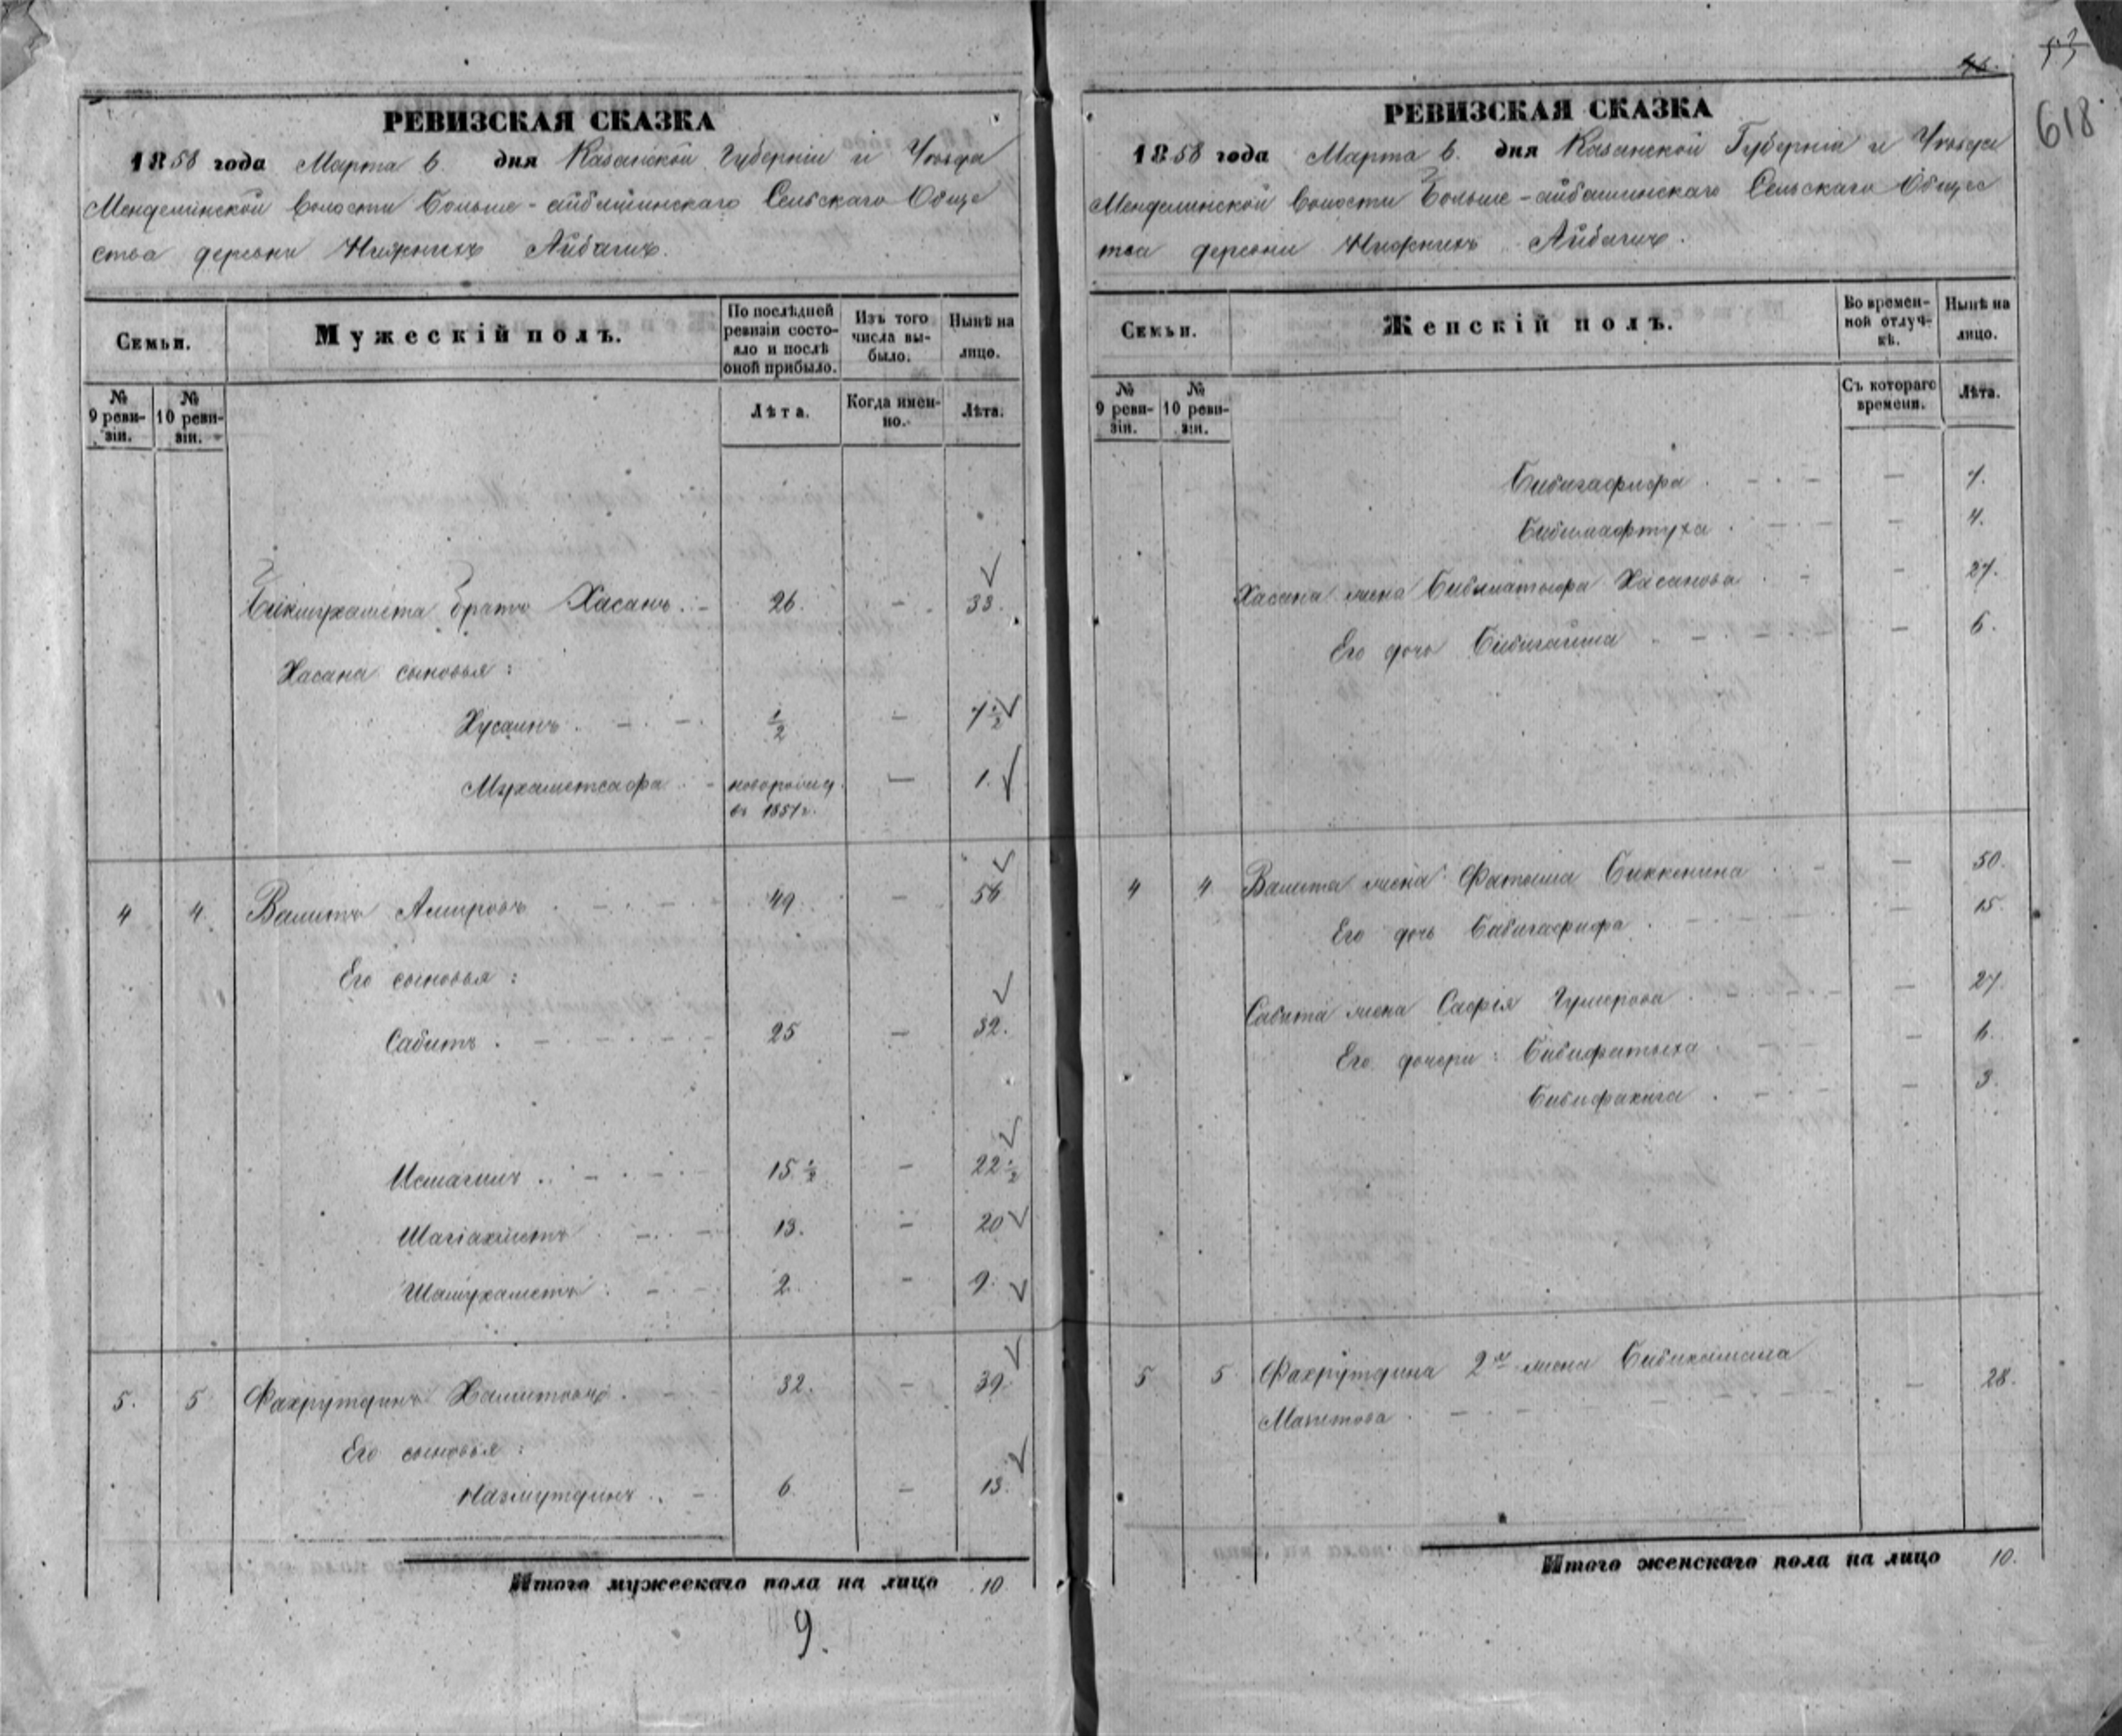 РЕВИЗСКАЯ СКАЗКА
1858 года Марта 6. дня Казанской Губернии и Уѣзда
Менделинской Волости Больше-айбашинскаго Сельскаго Обще
ства деревни Нижнихъ Айбашъ.
Семьи.
Мужескій полъ.
По послѣдней ревизіи состояло и послѣ оной прибыло.
Изъ того числа выбыло.
Нынѣ на лицо.
№ 9 ревизіи.
№ 10 ревизіи.
Лѣта.
Когда именно.
Лѣта.
Бикмухамета братъ Хасанъ. 26. — 33.
Хасана сыновья:
Хусаинъ. ½ — 7½
Мухаметсафа новорожд. — 1.
въ 1857 г.
4 4. Валитъ Амировъ 49. — 56
Его сыновья:
Сабитъ. 25 — 32.
Исмагилъ 15½ — 22½
Шагіахметъ 13. — 20
Шамухаметъ 2. — 9.
5. 5 Фахрутдинъ Хамитовъ. 32. — 39.
Его сыновья:
Назмутдинъ 6. — 13.
Итого мужескаго пола на лицо 10
9.
53
618
РЕВИЗСКАЯ СКАЗКА
1858 года Марта 6. дня Казанской Губерніи и Уѣзда
Менделинской Волости Больше-айбашинскаго Сельскаго Общес
тва деревни Нижнихъ Айбашъ.
Семьи.
Женскій полъ.
Во временной отлучкѣ.
Нынѣ на лицо.
№ 9 ревизіи.
№ 10 ревизіи.
Съ котораго времени.
Лѣта.
Бибигафифа — 7.
Бибимафтуха — 4.
Хасана жена Хасанова — 27.
Его дочь Бибигайша — 6.
4 4 Валита жена Фатыма Биккенина — 50.
Его дочь Бибигафифа — 15.
Сабита жена Сафія Гумерова — 27.
Его дочери: Бибифатыха — 6.
Бибифакига — 3.
5 5 Фахрутдина 2я жена Бибикамала
Махмутова — 28.
Итого женскаго пола на лицо 10.